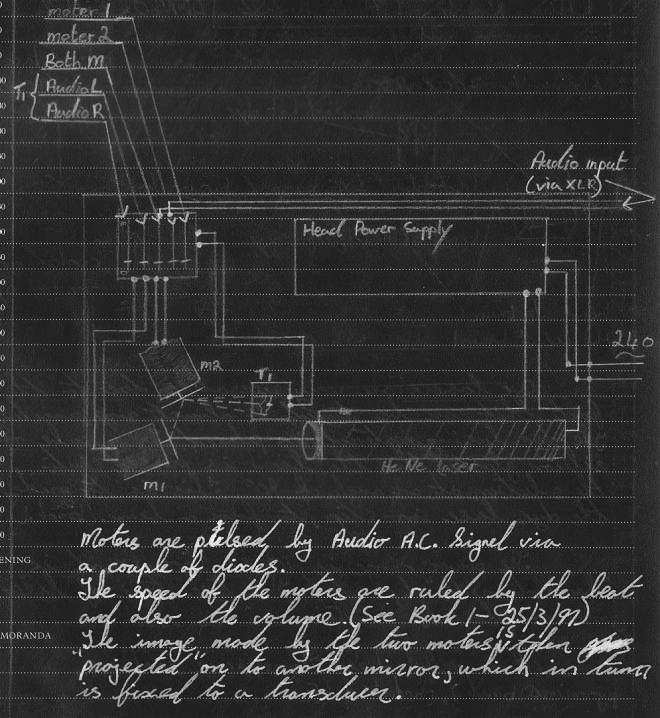 meter 1
meter 2
Both M
T1
Audio L
Audio R
Audio input
(via XLR)
Head Power Supply
240
m2
T1
He Ne laser
m1
Motors are pulsed by Audio A.C. Signal via
a couple of diodes.
The speed of the motors are ruled by the beat
and also the volume. (See Book 1 - 25/3/92)
"The image" made by the two motors is then
projected on to another mirror, which in turn
is fixed to a transducer.
ENING
MORANDA